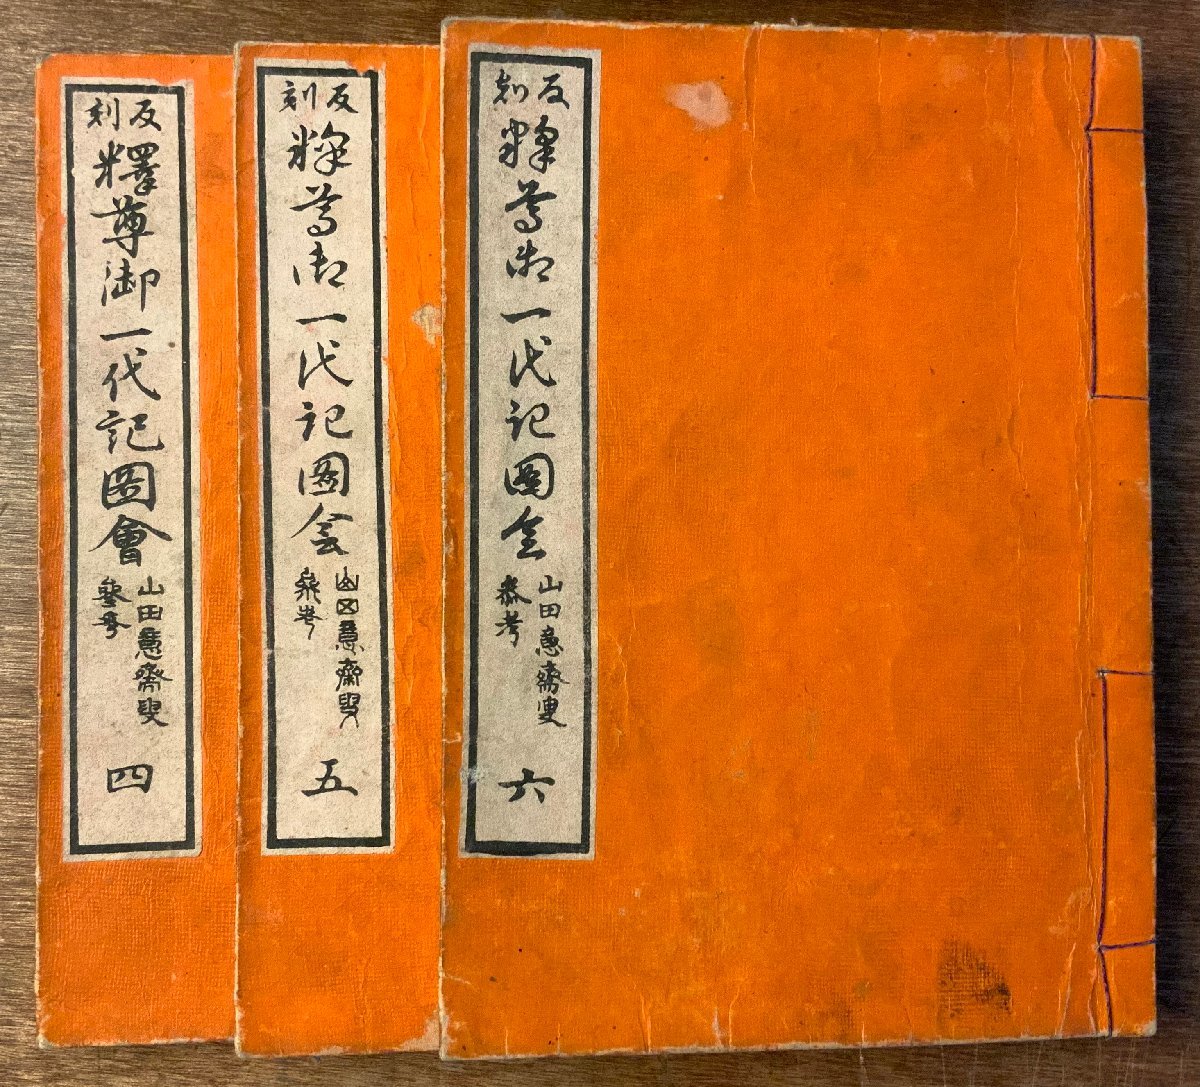 反刻
釋尊御一代記圖會
山田意齋叟
參考
四
反刻
釋尊御一代記圖会
山田意齋叟
參考
五
反刻
釋尊御一代記圖会
山田意齋叟
参考
六